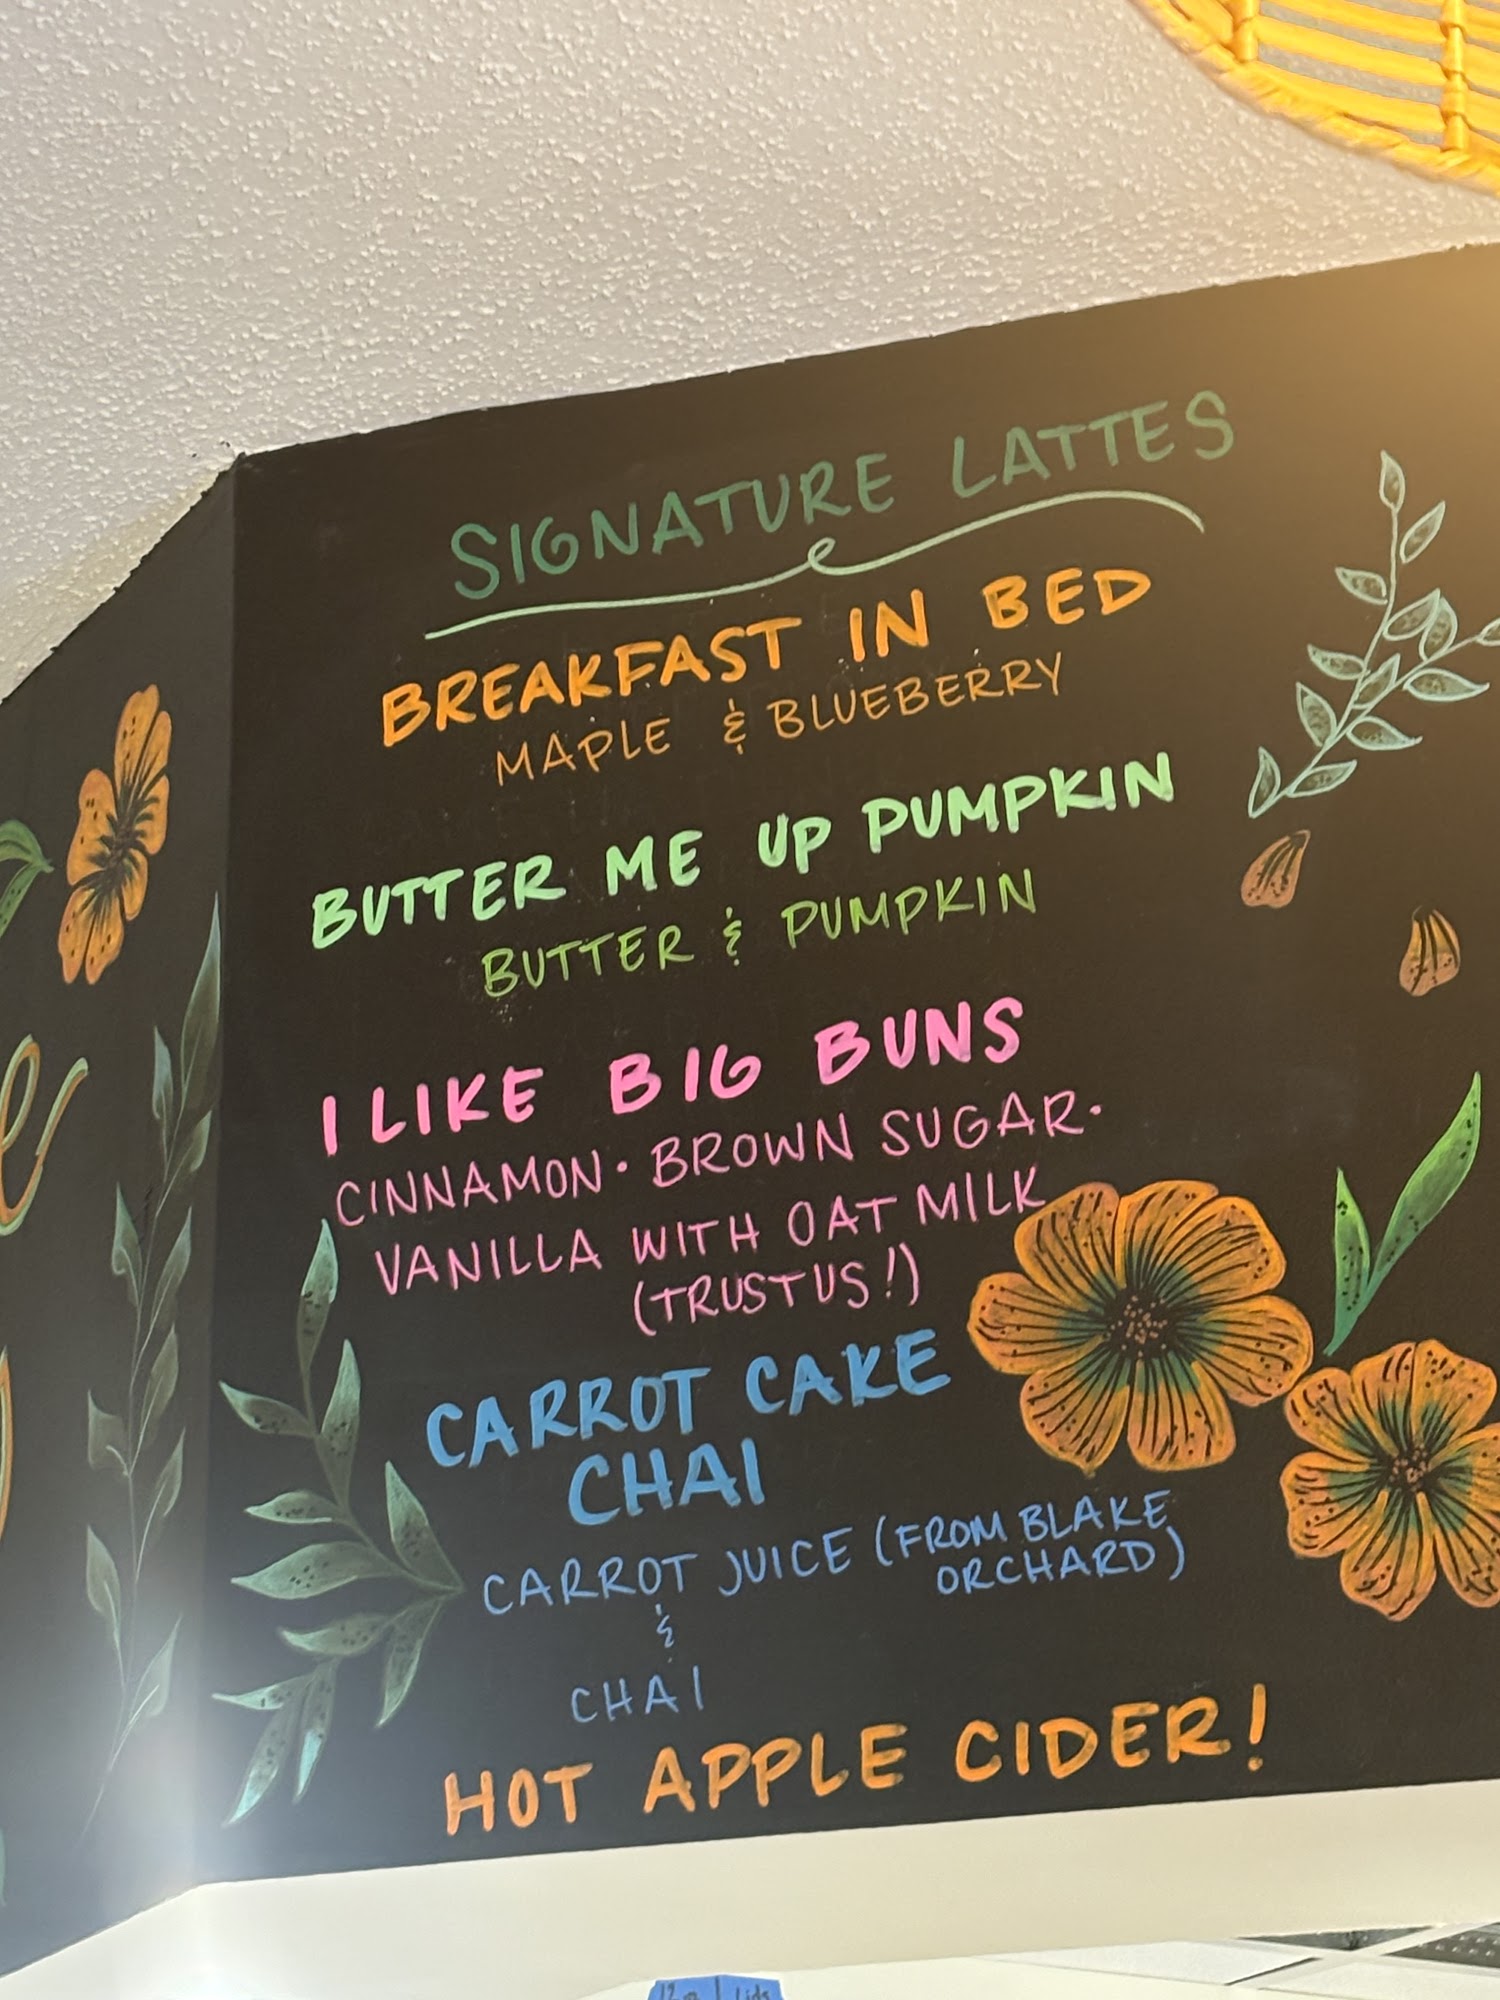 SIGNATURE LATTES
BREAKFAST IN BED
MAPLE & BLUEBERRY
BUTTER ME UP PUMPKIN
BUTTER & PUMPKIN
I LIKE BIG BUNS
CINNAMON · BROWN SUGAR ·
VANILLA WITH OAT MILK
(TRUST US!)
CARROT CAKE
CHAI
CARROT JUICE (FROM BLAKE
ORCHARD)
&
CHAI
HOT APPLE CIDER!
Lids